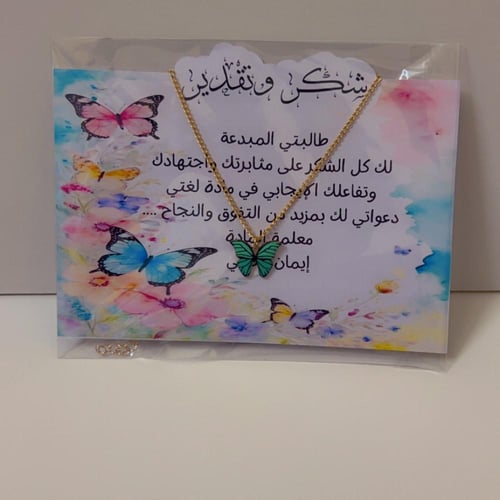 شكر وتقدير
طالبتي المبدعة
لك كل الشكر على مثابرتك واجتهادك
وتفاعلك الإيجابي في مادة لغتي
دعواتي لك بمزيد من التفوق والنجاح ....
معلمة المادة
إيمان